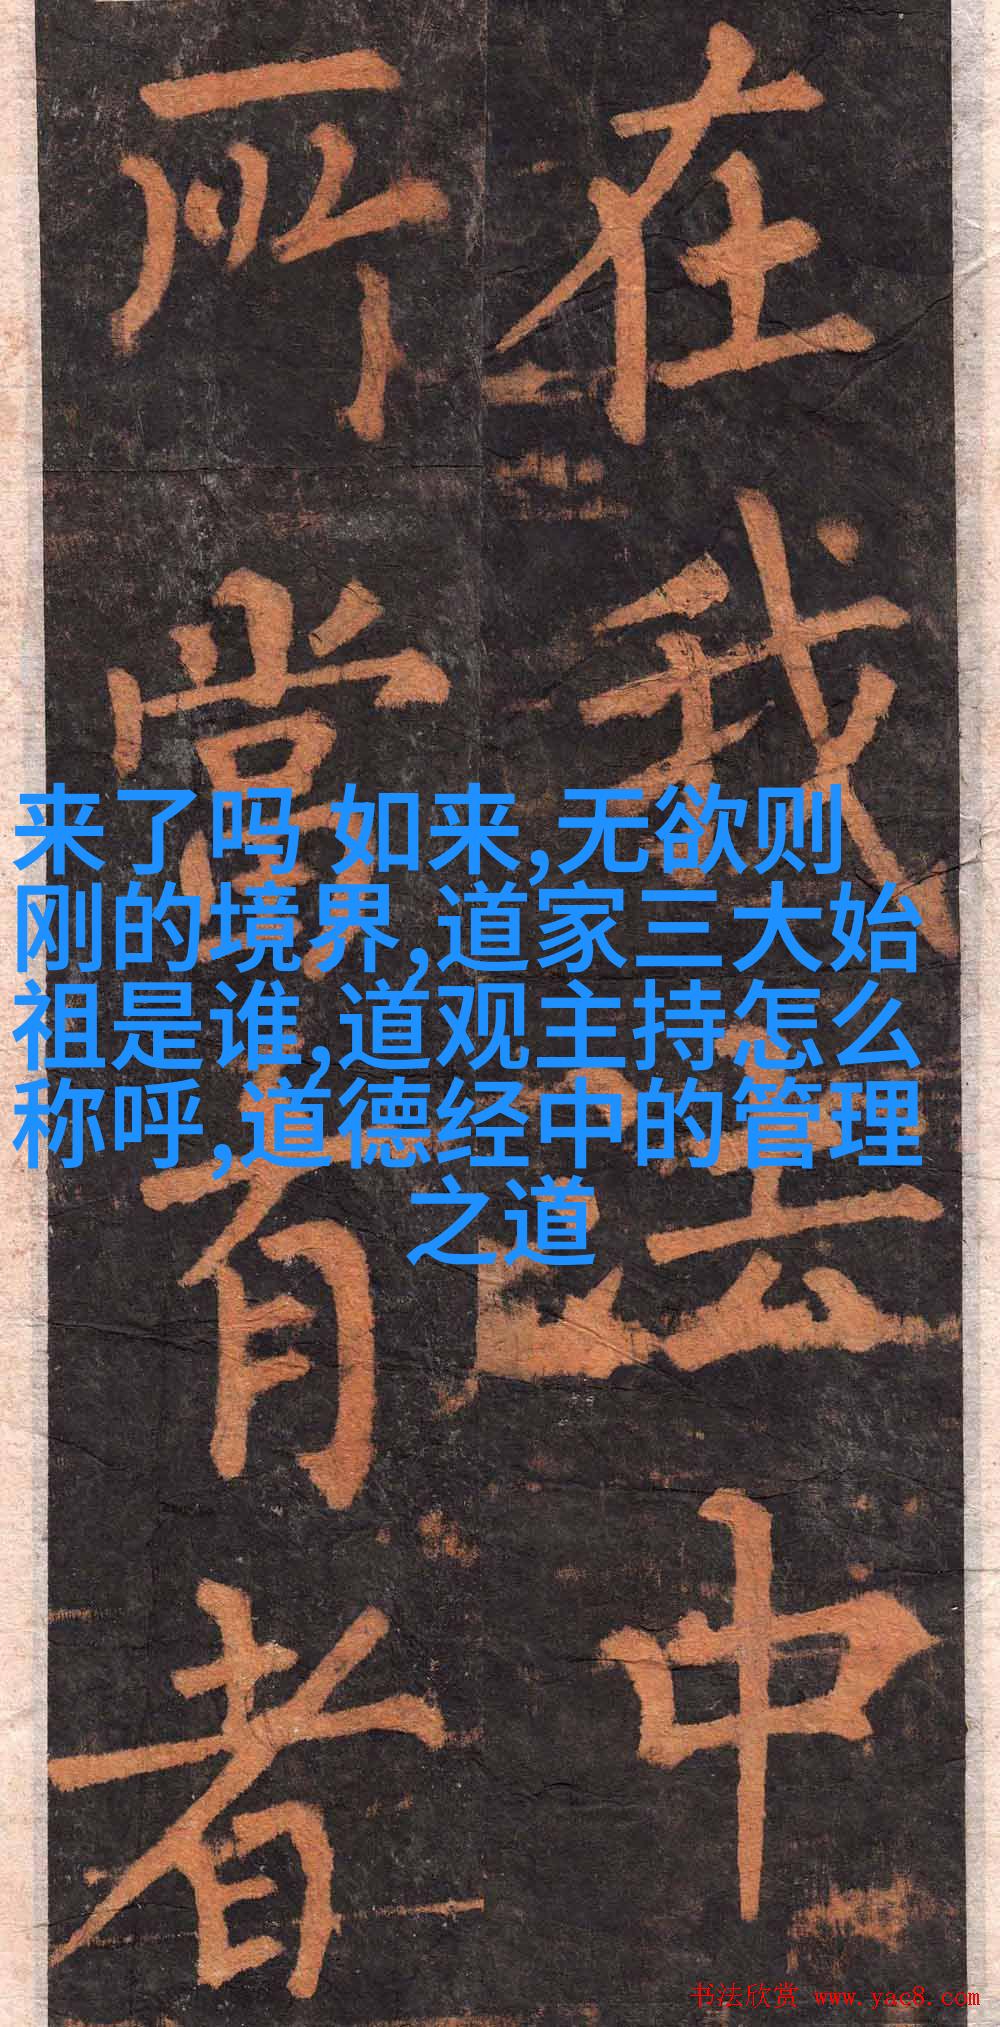 在我法中
所当有者
来了吗 如来,无欲则
刚的境界,道家三大始
祖是谁,道观主持怎么
称呼,道德经中的管理
之道
书法欣赏 www.yac8.com